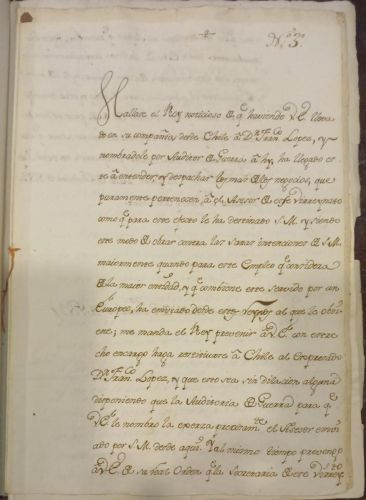 N.º 3.º
Hallase el Rey noticioso de q.e haviendo V.E. lleva
do en su compañia desde Chile a D.n Fran.co Lopez, y
nombradole por Auditor de Guerra de hay, ha llegado es
te a entender, y despachar los mas de los negocios, que
puramente pertenecen a el Asesor de ese Virreynato
como q.e para este efecto le ha destinado S.M. y siendo
este modo de obrar contra las sanas intenciones de S.M.
maiormente quando para este Empleo q.e considera
de la maior entidad, y q.e combiene este servido por un
Europeo, ha embiado desde estos Reynos al que le obtie
ne; me manda el Rey prevenir a V.E. con estre
cho encargo haga restituirse a Chile al expresado
D.n Fran.co Lopez, y que esto sea sin dilacion alguna
disponiendo que la Auditoria de Guerra para q.e
V.E. le nombro la exerza precisam.te el Asesor envi
ado por S.M. desde aqui. Y al mismo tiempo prevengo
a V.E. de su real Orden q.e la Secretaria de ese Virrey